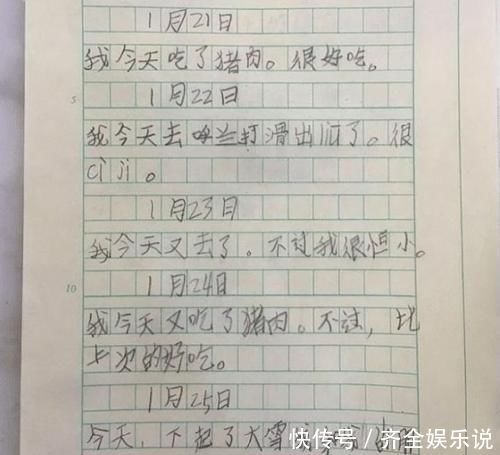 1月21日
我今天吃了猪肉。很好吃。
5
1月22日
我今天去呼兰打滑出溜了。很
cì jī。
1月23日
我今天又去了。不过我很恒小。
10
1月24日
我今天又吃了猪肉。不过,比
上次的好吃。
1月25日
今天,下起了大雪
快传号/齐全娱乐说